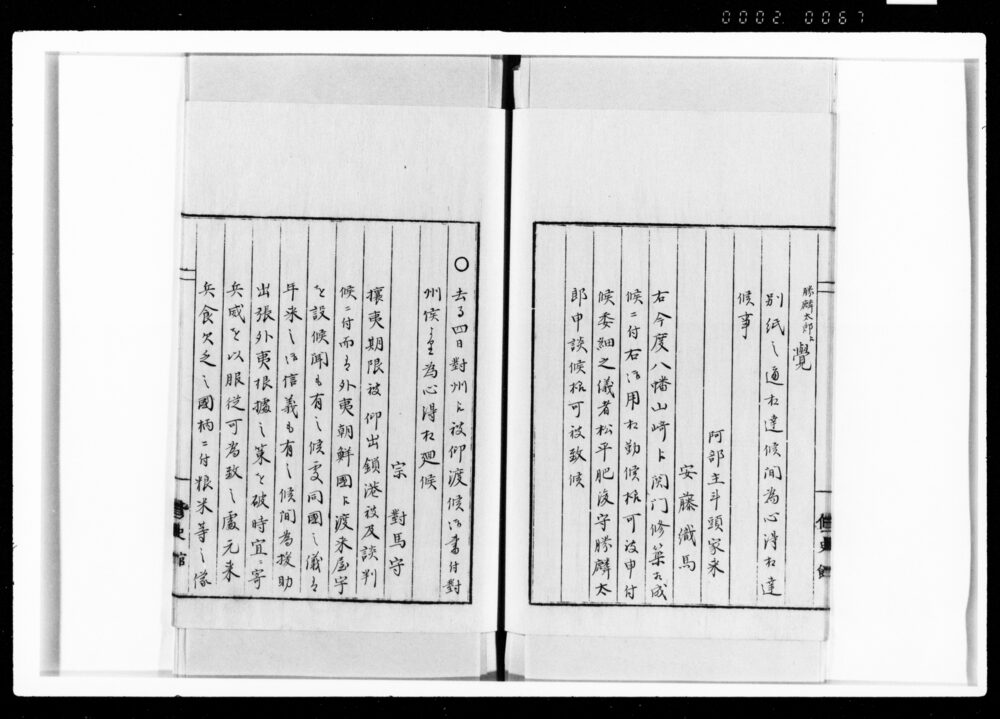 0002 0067
勝麟太郎ゟ
覺
別紙之通相達候間為心得相達
候事
阿部主斗頭家来
安藤織馬
右今度八幡山崎ゟ関門修築相成
候ニ付右御用相勤候様可被申付
候委細之儀者松平肥後守勝麟太
郎申談候様可被致候
○去ル四日對州ゟ被仰渡候御書付對
州候ゟ為心得相廻候
宗對馬守
攘夷期限被仰出鎖港被及談判
候ニ付而者外夷朝鮮國ゟ渡来屋宇
を設候聞も有之候処同國之儀者
年来之御信義も有之候間為援助
出張外夷根據之策を破時宜ニ寄
兵威を以服従可為致之處元来
兵食欠乏之國柄ニ付粮米等之儀
修史館
修史館